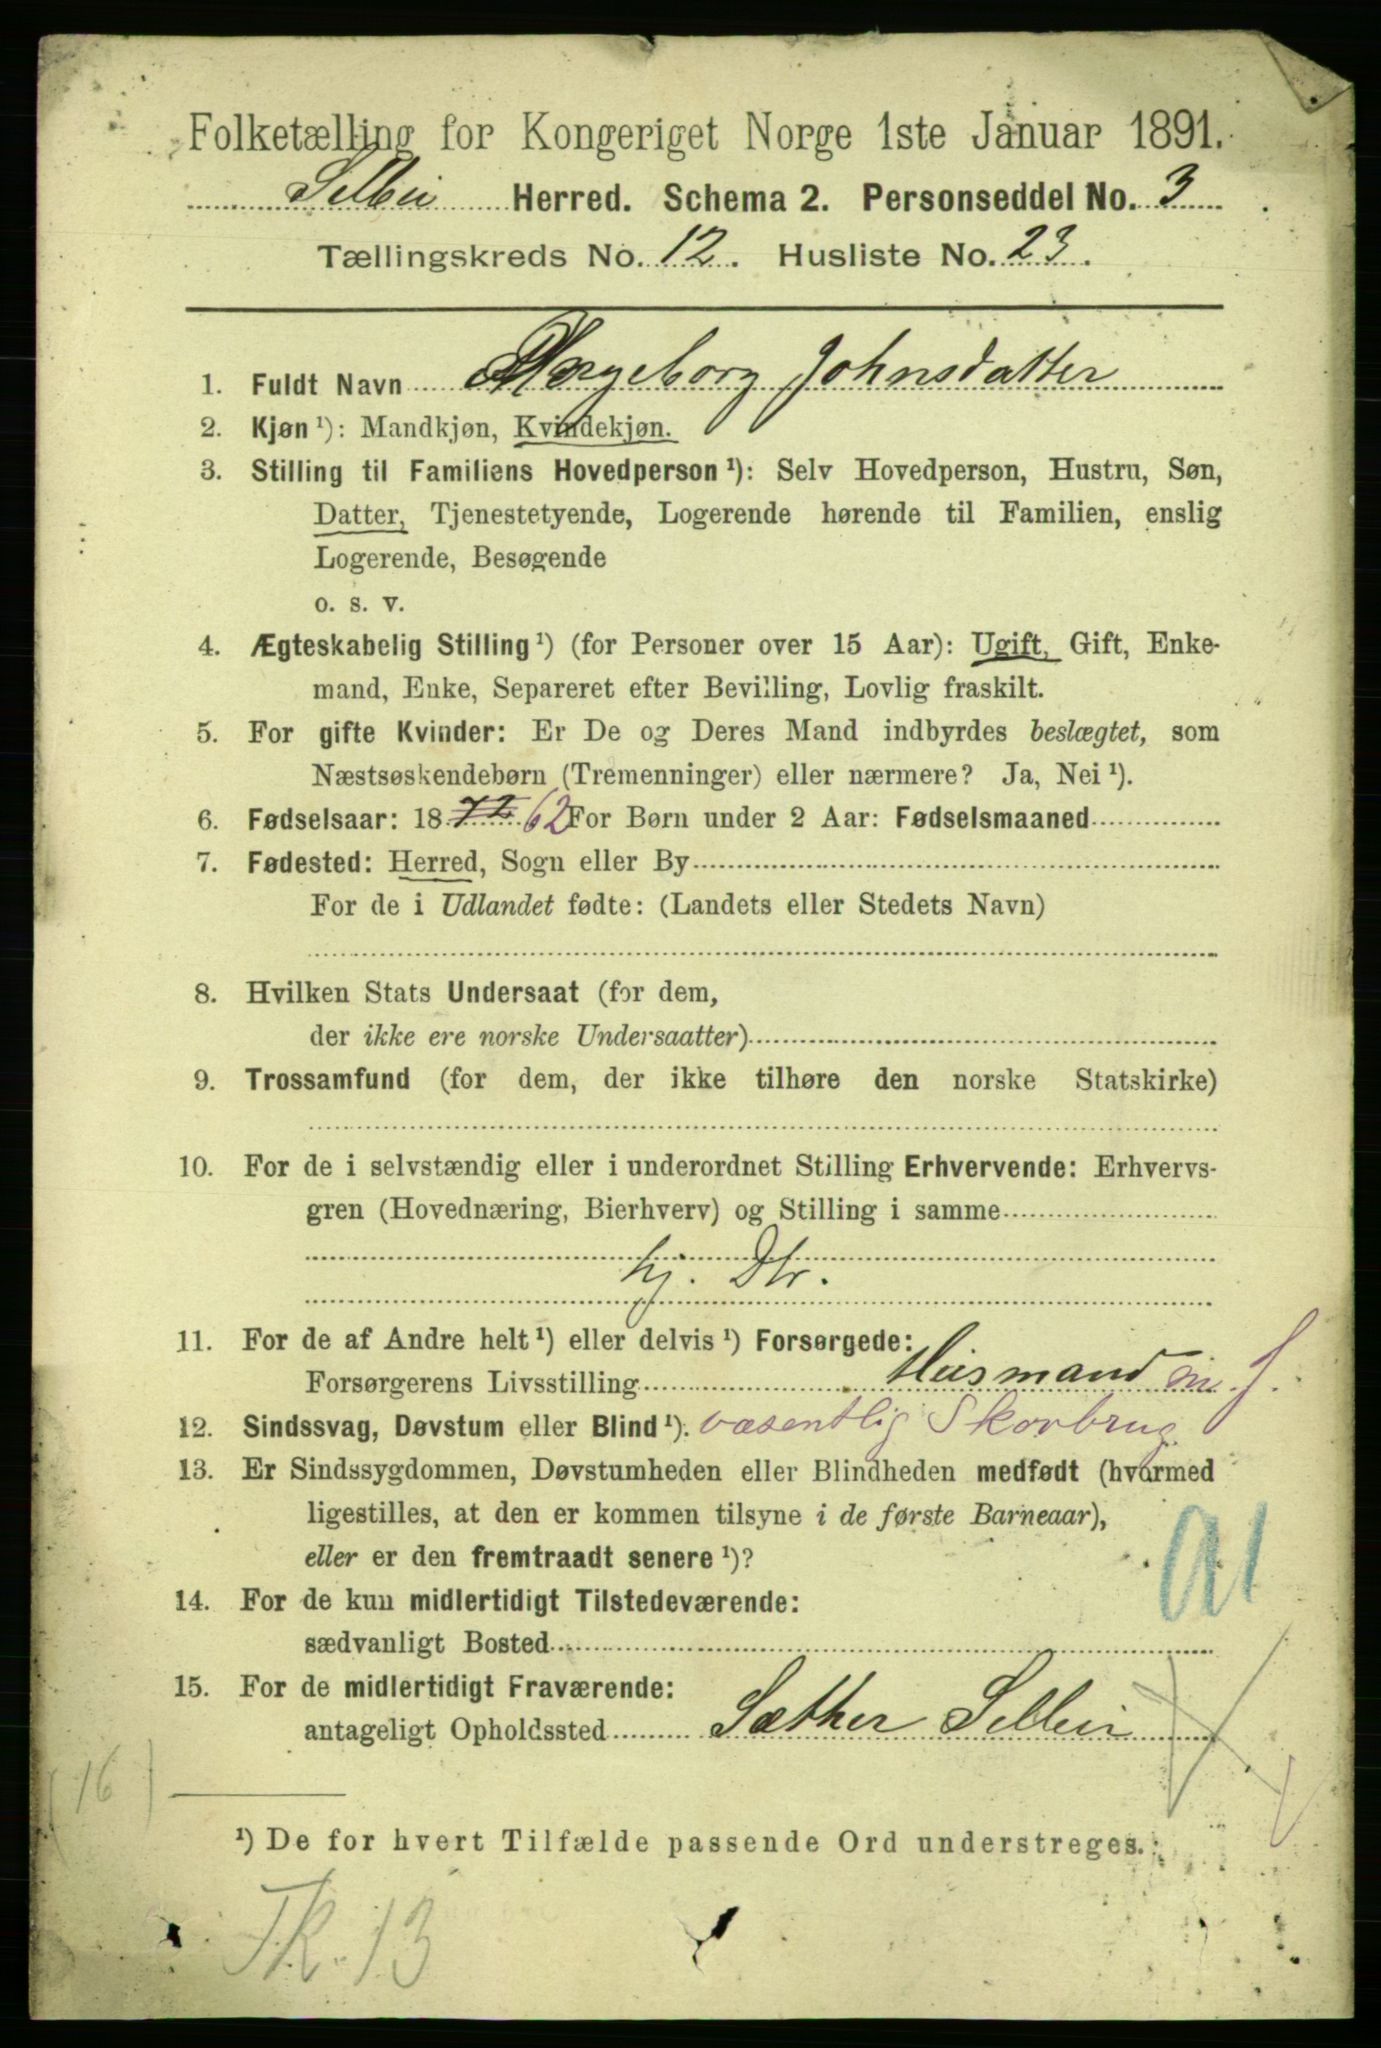 Folketælling for Kongeriget Norge 1ste Januar 1891.
Selbu Herred. Schema 2. Personseddel No. 3
Tællingskreds No. 12. Husliste No. 23.
1. Fuldt Navn Johnsdatter
2. Kjøn ¹): Mandkjøn, Kvindekjøn.
3. Stilling til Familiens Hovedperson ¹): Selv Hovedperson, Hustru, Søn,
Datter, Tjenestetyende, Logerende hørende til Familien, enslig
Logerende, Besøgende
o. s. v.
4. Ægteskabelig Stilling ¹) (for Personer over 15 Aar): Ugift, Gift, Enke-
mand, Enke, Separeret efter Bevilling, Lovlig fraskilt.
5. For gifte Kvinder: Er De og Deres Mand indbyrdes beslægtet, som
Næstsøskendebørn (Tremenninger) eller nærmere? Ja, Nei ¹).
6. Fødselsaar: 18 72 62 For Børn under 2 Aar: Fødselsmaaned
7. Fødested: Herred, Sogn eller By
For de i Udlandet fødte: (Landets eller Stedets Navn)
8. Hvilken Stats Undersaat (for dem,
der ikke ere norske Undersaatter)
9. Trossamfund (for dem, der ikke tilhøre den norske Statskirke)
10. For de i selvstændig eller i underordnet Stilling Erhvervende: Erhvervs-
gren (Hovednæring, Bierhverv) og Stilling i samme
hj. Dtr.
11. For de af Andre helt ¹) eller delvis ¹) Forsørgede:
Forsørgerens Livsstilling Husmand m. J.
12. Sindssvag, Døvstum eller Blind ¹). væsentlig Skovbrug
13. Er Sindssygdommen, Døvstumheden eller Blindheden medfødt (hvormed
ligestilles, at den er kommen tilsyne i de første Barneaar),
eller er den fremtraadt senere ¹)?
14. For de kun midlertidigt Tilstedeværende:
sædvanligt Bosted
15. For de midlertidigt Fraværende:
antageligt Opholdssted Sæther Selbu
(16)
¹) De for hvert Tilfælde passende Ord understreges.
Tk. 13